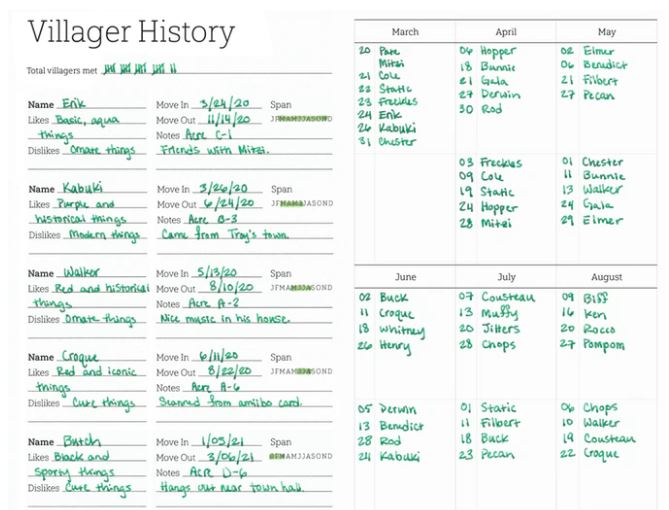 Villager History
Total villagers met
Name Erik
Move In 3/24/20 Span
Likes Basic, aqua things
Move Out 11/14/20 JFMAMJJASOND
Notes Acre C-1
Dislikes Ornate things
Friends with Mitzi.
Name Kabuki
Move In 3/26/20 Span
Likes Purple and historical things
Move Out 6/24/20 JFMAMJJASOND
Notes Acre B-3
Dislikes Modern things
Came from Troy's town.
Name Walker
Move In 5/13/20 Span
Likes Red and historical things
Move Out 8/10/20 JFMAMJJASOND
Notes Acre A-2
Dislikes Ornate things
Nice music in his house.
Name Croque
Move In 6/11/20 Span
Likes Red and iconic things
Move Out 8/22/20 JFMAMJJASOND
Notes Acre A-6
Dislikes Cute things
Scanned from amiibo card.
Name Butch
Move In 1/05/21 Span
Likes Black and sporty things
Move Out 3/06/21 JFMAMJJASOND
Notes Acre D-6
Dislikes Cute things
Hangs out near town hall.
March
20 Pate
Mitzi
21 Cole
22 Static
23 Freckles
24 Erik
26 Kabuki
31 Chester
April
04 Hopper
18 Bunnie
21 Gala
27 Derwin
30 Rod
03 Freckles
09 Cole
19 Static
24 Hopper
28 Mitzi
May
02 Elmer
06 Benedict
21 Filbert
27 Pecan
01 Chester
11 Bunnie
13 Walker
24 Gala
29 Elmer
June
02 Buck
11 Croque
18 Whitney
26 Henry
05 Derwin
13 Benedict
28 Rod
24 Kabuki
July
07 Cousteau
13 Muffy
20 Jitters
28 Chops
01 Static
11 Filbert
18 Buck
23 Pecan
August
09 Biff
16 Ken
20 Rocco
27 Pompom
06 Chops
10 Walker
19 Cousteau
22 Croque